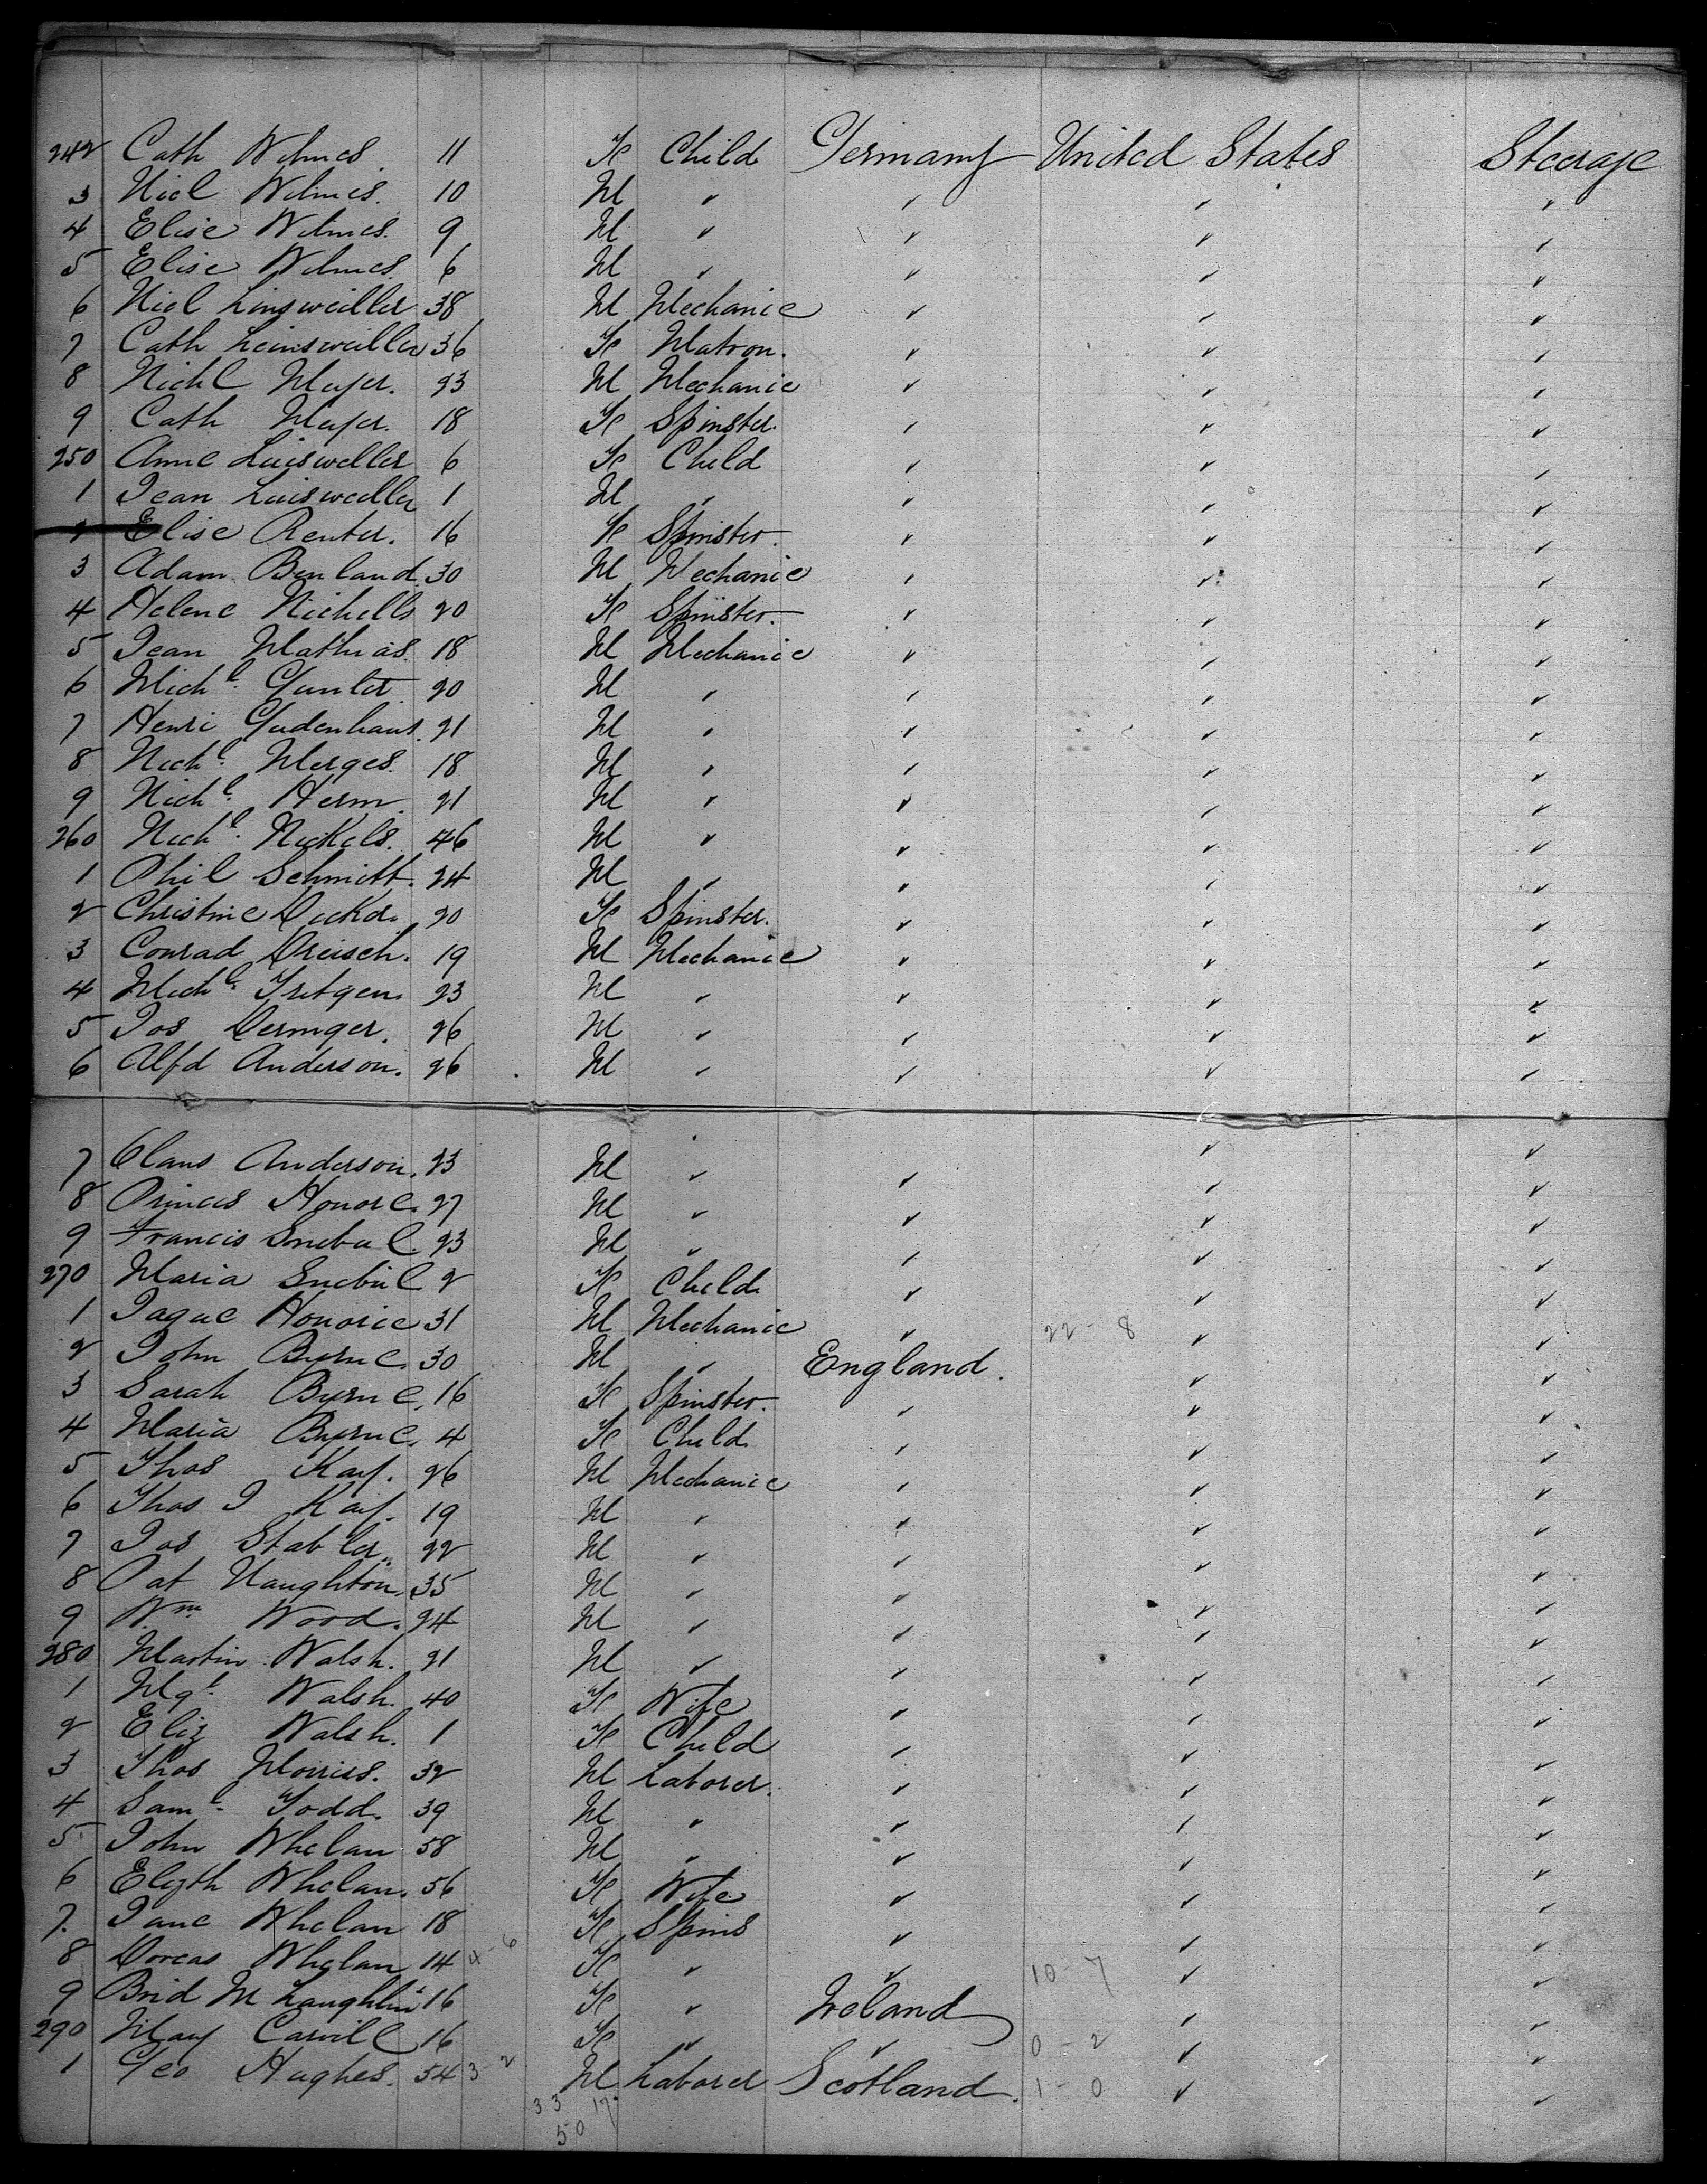 242 Cath Wilmes. 11 F Child Germany United States Steerage
3 Nicl Wilmes. 10 M " " " "
4 Elise Wilmes. 9 M " " " "
5 Elise Wilmes. 6 M " " " "
6 Nicl Linsweiller 38 M Mechanic " " "
7 Cath Leinsweiller 36 F Matron. " " "
8 Nichl Meyer. 23 M Mechanic " " "
9 Cath Meyer. 18 F Spinster. " " "
250 Anne Luisweller 6 F Child " " "
1 Jean Luisweller 1 M " " " "
2 Elise Reuter. 16 F Spinster. " " "
3 Adam Benland. 30 M Mechanic " " "
4 Helene Nichells 20 F Spinster. " " "
5 Jean Mathias. 18 M Mechanic " " "
6 Michl. Gunlet 20 M " " " "
7 Henri Gudenhaus. 21 M " " " "
8 Nichl. Merges. 18 M " " " "
9 Nichl. Herm. 21 M " " " "
260 Nichl. Nickels. 46 M " " " "
1 Phil Schmitt. 24 M " " " "
2 Christine Decker. 20 F Spinster. " " "
3 Conrad Dreisch. 19 M Mechanic " " "
4 Michl. Fritgen. 23 M " " " "
5 Jos Deringer. 26 M " " " "
6 Alfd Anderson. 26 M " " " "
7 Claus Anderson. 23 M " " " "
8 Princes Honore. 27 M " " " "
9 Francis Snebul. 23 M " " " "
270 Maria Snebul 2 F Child " " "
1 Jaque Honorie 31 M Mechanic " 22 - 8 " "
2 John Byrne. 30 M " England. " "
3 Sarah Byrne. 16 F Spinster. " " "
4 Maria Byrne. 4 F Child " " "
5 Thos Kay. 26 M Mechanic " " "
6 Thos J Kay. 19 M " " " "
7 Jos Stabler. 22 M " " " "
8 Pat Naughton. 35 M " " " "
9 Wm Wood. 24 M " " " "
280 Martin Walsh. 21 M " " " "
1 Mgt. Walsh. 40 F Wife " " "
2 Eliz Walsh. 1 F Child " " "
3 Thos Morris. 32 M Laborer. " " "
4 Saml. Todd. 39 M " " " "
5 John Whelan 58 M " " " "
6 Elizth Whelan. 56 F Wife " " "
7. Jane Whelan 18 F Spins " " "
8 Dorcas Whelan 14 4 - 6 F " " 10 - 7 " "
9 Brid McLaughlin 16 F " Ireland " "
290 Mary Carvill 16 F " " 0 - 2 " "
1 Geo Hughes. 54 3 - 2 M Laborer Scotland. 1 - 0 " "
33 17
50